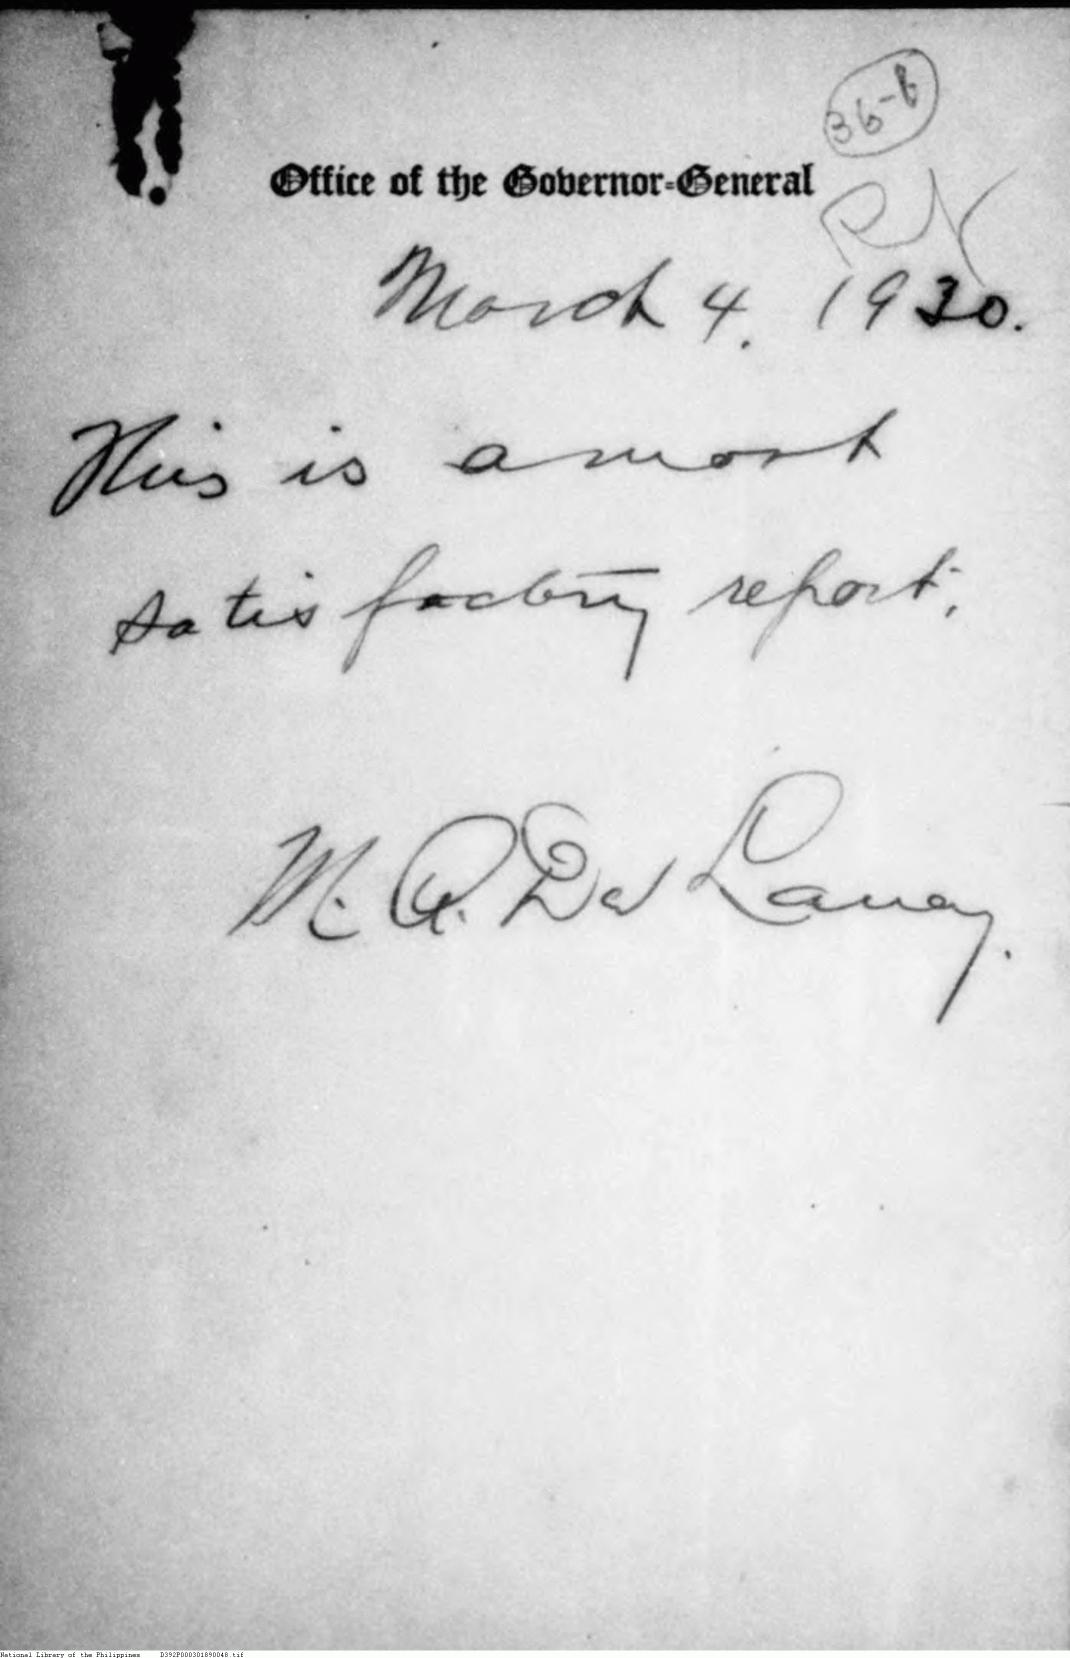 36-8
Office of the Governor-General
RN
March 4, 1930.
This is a most
satisfactory report.
M. A. De Laney.
National Library of the Philippines D392P000301890048.tif